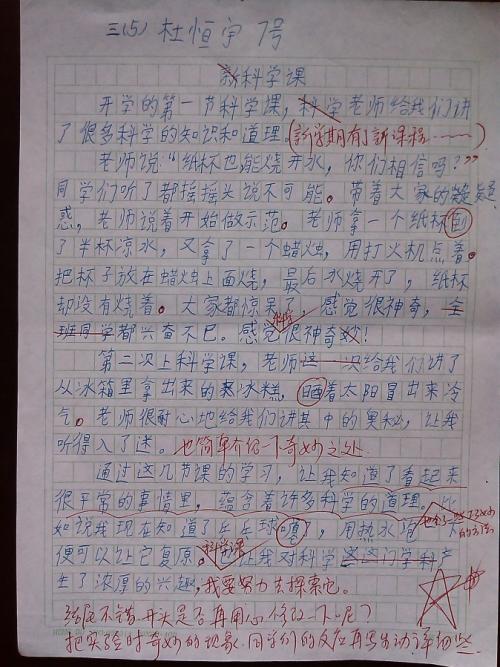 三(5) 杜恒宇 7号
新科学课
开学的第一节科学课，科学老师给我们讲
了很多科学的知识和道理。(新学期有了新课程……)
老师说：“纸杯也能烧开水，你们相信吗？”
同学们听了都摇摇头说不可能。带着大家的疑
惑，老师说着开始做示范。老师拿一个纸杯倒
了半杯凉水，又拿了一个蜡烛，用打火机点着。
把杯子放在蜡烛上面烧，最后水烧开了，纸杯
却没有烧着。大家都惊呆了，感觉很神奇，全
班同学都兴奋不已。感觉很神奇妙！
第二次上科学课，老师这一次给我们讲了
从冰箱里拿出来的冰糕，晒着太阳冒出来冷
气。老师很耐心地给我们讲其中的奥秘，让我
听得入了迷。也简单介绍一下奇妙之处
通过这几节课的学习，让我知道了看起来
很平常的事情里，蕴含着许多科学的道理。比
如说我现在知道了乒乓球，用热水
便可以让它复原。科学课让我对科学这门学科产
生了浓厚的兴趣，我要努力去探索吧。
结尾不错，开头是否再用心修改一下呢？
把实验时奇妙的现象，同学们的反应再写生动详细些